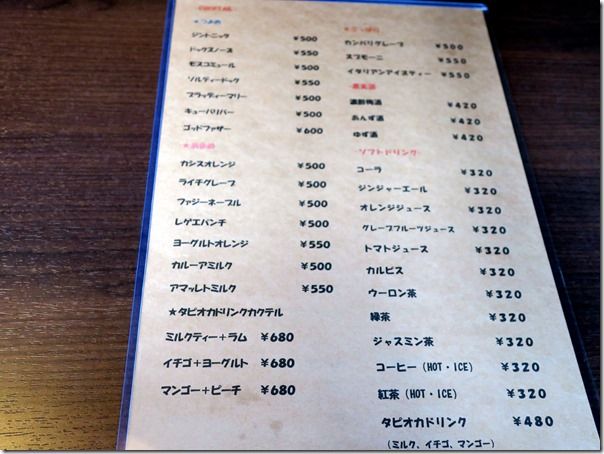 COCKTAIL
ジントニック ￥500
ドックスノーズ ￥550
モスコミュール ￥500
ソルティードック ￥550
ブラッディーマリー ￥500
キューバリバー ￥500
ゴッドファザー ￥600
カシスオレンジ ￥500
ライチグレープ ￥500
ファジーネーブル ￥500
レゲエパンチ ￥500
ヨーグルトオレンジ ￥550
カルーアミルク ￥500
アマッレトミルク ￥550
★タピオカドリンクカクテル
ミルクティー＋ラム ￥680
イチゴ＋ヨーグルト ￥680
マンゴー＋ピーチ ￥680
カンパリグレープ ￥500
スプモーニ ￥550
イタリアンアイスティー ￥550
･果実酒
濃醇梅酒 ￥420
あんず酒 ￥420
ゆず酒 ￥420
･ソフトドリンク･
コーラ ￥320
ジンジャーエール ￥320
オレンジジュース ￥320
グレープフルーツジュース ￥320
トマトジュース ￥320
カルピス ￥320
ウーロン茶 ￥320
緑茶 ￥320
ジャスミン茶 ￥320
コーヒー（HOT・ICE） ￥320
紅茶（HOT・ICE） ￥320
タピオカドリンク ￥480
（ミルク、イチゴ、マンゴー）